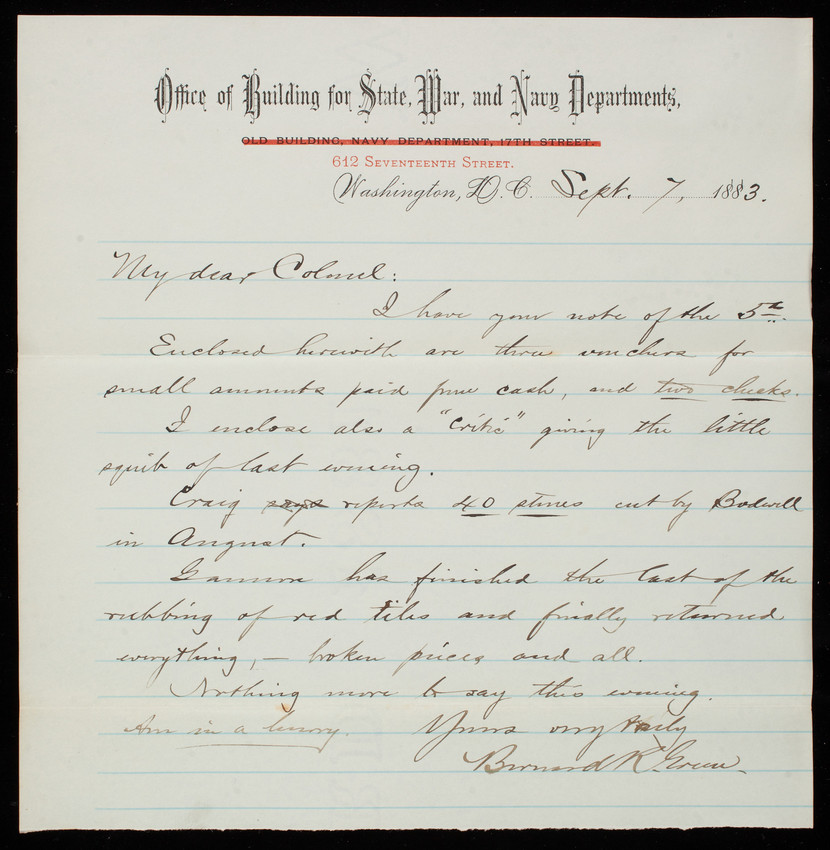 Office of Building for State, War, and Navy Departments,
OLD BUILDING, NAVY DEPARTMENT, 17TH STREET.
612 SEVENTEENTH STREET.
Washington, D. C. Sept. 7, 1883.
My dear Colonel:
I have your note of the 5th.
Enclosed herewith are three vouchers for
small amounts paid from cash, and two checks.
I enclose also a "Critic" giving the little
squib of last evening.
Craig says reports 40 stones cut by Bodwell
in August.
Gannon has finished the last of the
rubbing of red tiles and finally returned
everything, — broken pieces and all.
Nothing more to say this evening.
Am in a hurry. Yours very truly
Bernard R. Green.